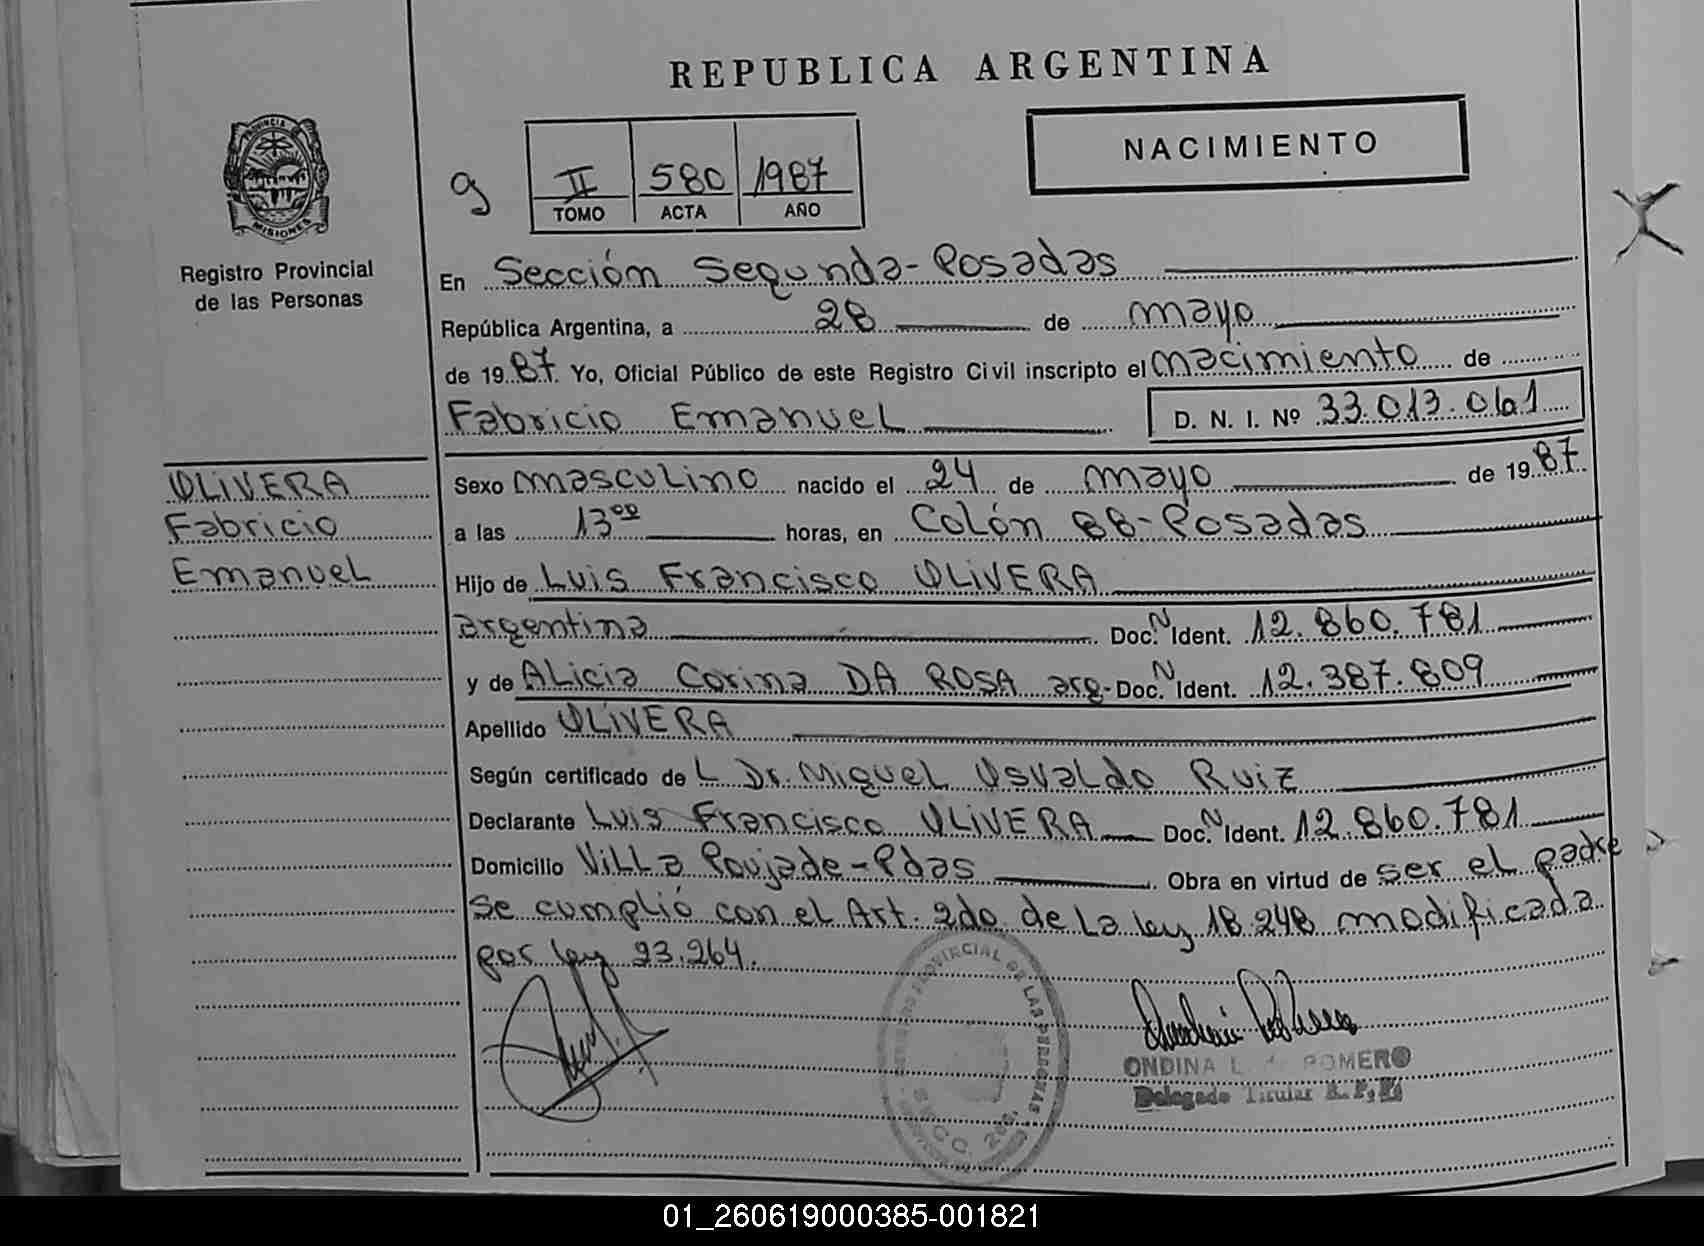 REPUBLICA ARGENTINA
PROVINCIA DE
MISIONES
Registro Provincial
de las Personas
9
II 580 1987
TOMO ACTA AÑO
NACIMIENTO
En Sección Segunda-Posadas
República Argentina, a 28 de mayo
de 1987. Yo, Oficial Público de este Registro Civil inscripto el nacimiento de
Fabricio Emanuel D. N. I. Nº 33.013.061
OLIVERA
Fabricio
Emanuel
Sexo masculino nacido el 24 de mayo de 1987
a las 13⁰⁰ horas, en Colón 88-Posadas
Hijo de Luis Francisco OLIVERA
argentina Doc. N Ident. 12.860.781
y de Alicia Corina DA ROSA arg- Doc. N Ident. 12.387.809
Apellido OLIVERA
Según certificado de L Dr. Miguel Osvaldo Ruiz
Declarante Luis Francisco OLIVERA Doc. N Ident. 12.860.781
Domicilio Villa Poujade-Pdas Obra en virtud de ser el padre
Se cumplió con el Art. 2do de la ley 18.248 modificada
por ley 23.264.
REGISTRO PROVINCIAL DE LAS PERSONAS
SECC. 2da.
ONDINA L. ROMERO
Delegado Titular R. P. P.
01_260619000385-001821